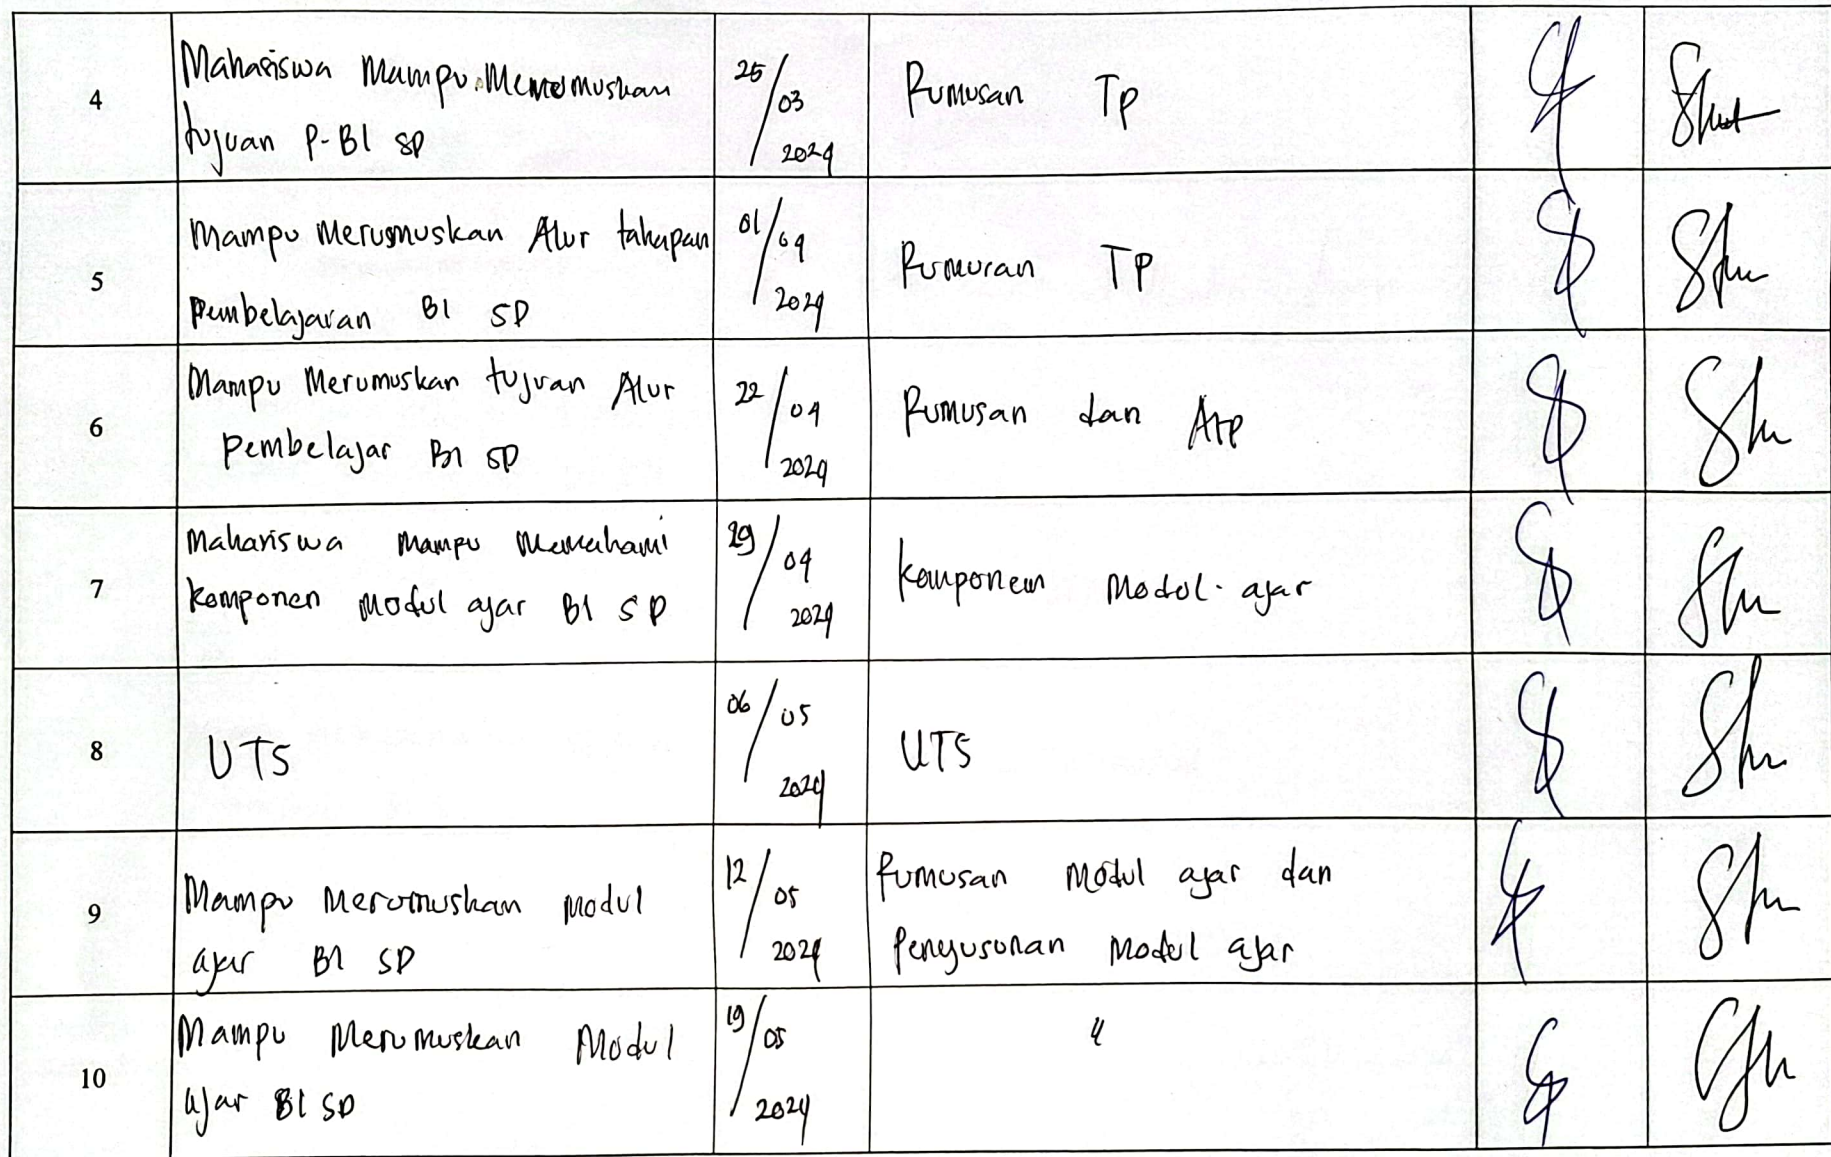 4
Mahasiswa Mampu Merumuskan
tujuan P-BI SD
25/03
2024
Rumusan TP
5
Mampu Merumuskan Alur tahapan
Pembelajaran BI SD
01/04
2024
Rumusan TP
6
Mampu Merumuskan tujuan Alur
pembelajar BI SD
22/04
2024
Rumusan dan ATP
7
Mahasiswa Mampu Memahami
komponen Modul ajar BI SD
29/04
2024
komponen Modul ajar
8
UTS
06/05
2024
UTS
9
Mampu Merumuskan Modul
ajar BI SD
12/05
2024
Rumusan Modul ajar dan
Penyusunan Modul ajar
10
Mampu Merumuskan Modul
ajar BI SD
19/05
2024
"